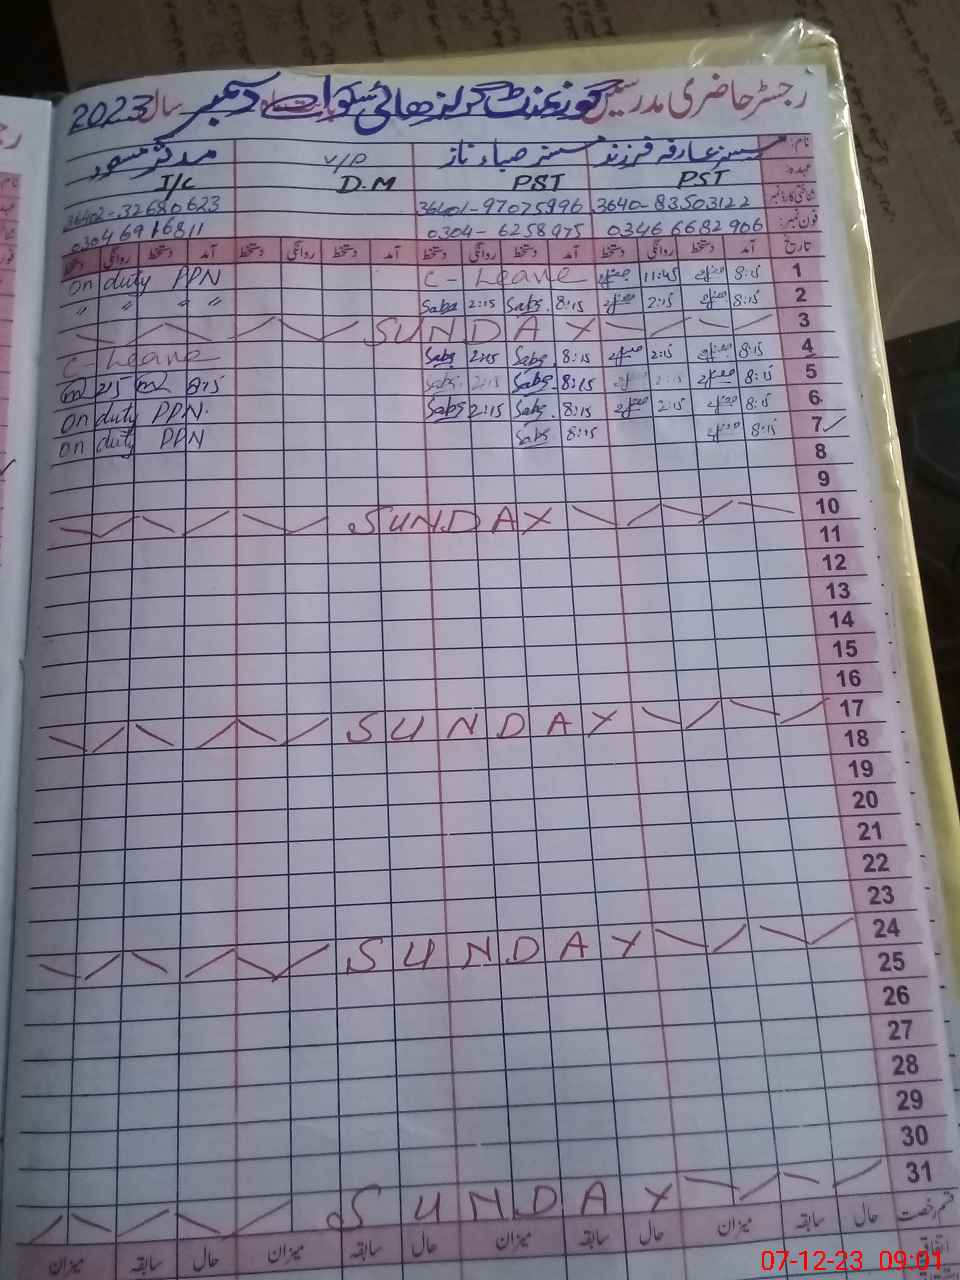 رجسٹر حاضری مدرسین گورنمنٹ گرلز ھائی سکول دسمبر سال 2023
نام: مسسز عارفہ فرزند مسسز صباء ناز V/P
عہدہ PST PST D.M I/C
شناختی کارڈ نمبر 3640-83503122 36401-97075996 36402-32680623
فون نمبر: 0346 6682906 0304-6258975 0304 6916811
تاریخ آمد دستخط روانگی دستخط آمد دستخط روانگی دستخط آمد دستخط روانگی دستخط آمد دستخط روانگی دستخط
1 8:15 11:45 C-Leave on duty PPN
2 8:15 2:15 8:15 Saba. 2:15 Saba " " " "
3 SUNDAY
4 8:15 2:15 8:15 Saba. 2:15 Saba C-Leave
5 8:15 2:15 8:15 Saba. 2:15 Saba. 8:15 2:15
6 8:15 2:15 8:15 Saba. 2:15 Saba on duty PPN.
7 8:15 8:15 Saba on duty PPN
8
9
10 SUNDAY
11
12
13
14
15
16
17 SUNDAY
18
19
20
21
22
23
24 SUNDAY
25
26
27
28
29
30
31 SUNDAY
قسم رخصت حال سابقہ میزان حال سابقہ میزان حال سابقہ میزان حال سابقہ میزان
اتفاقی
07-12-23 09:01